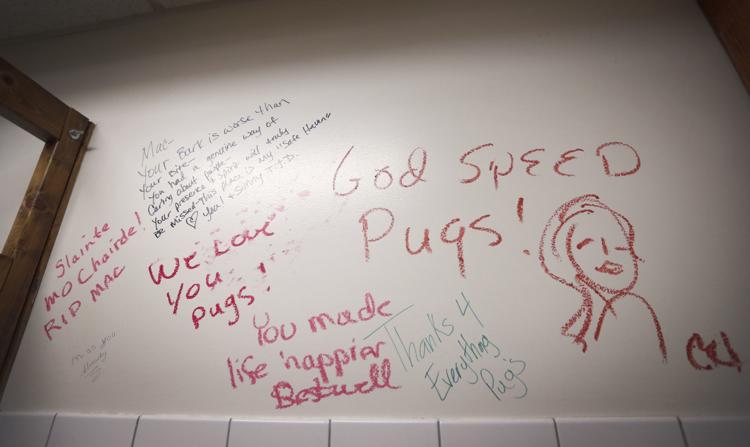 Mac-
Your Bark is worse than
your Bite-
You had a genuine way of
Caring about people-
Your presence & spirit will truly
be missed-this place is my "Safe Haven"
Slainte
mo Chairde!
RIP MAC
We Love
You
Pugs!
GOD SPEED
Pugs!
You made
life happier
Thanks 4
Everything
Pugs
miss you
already